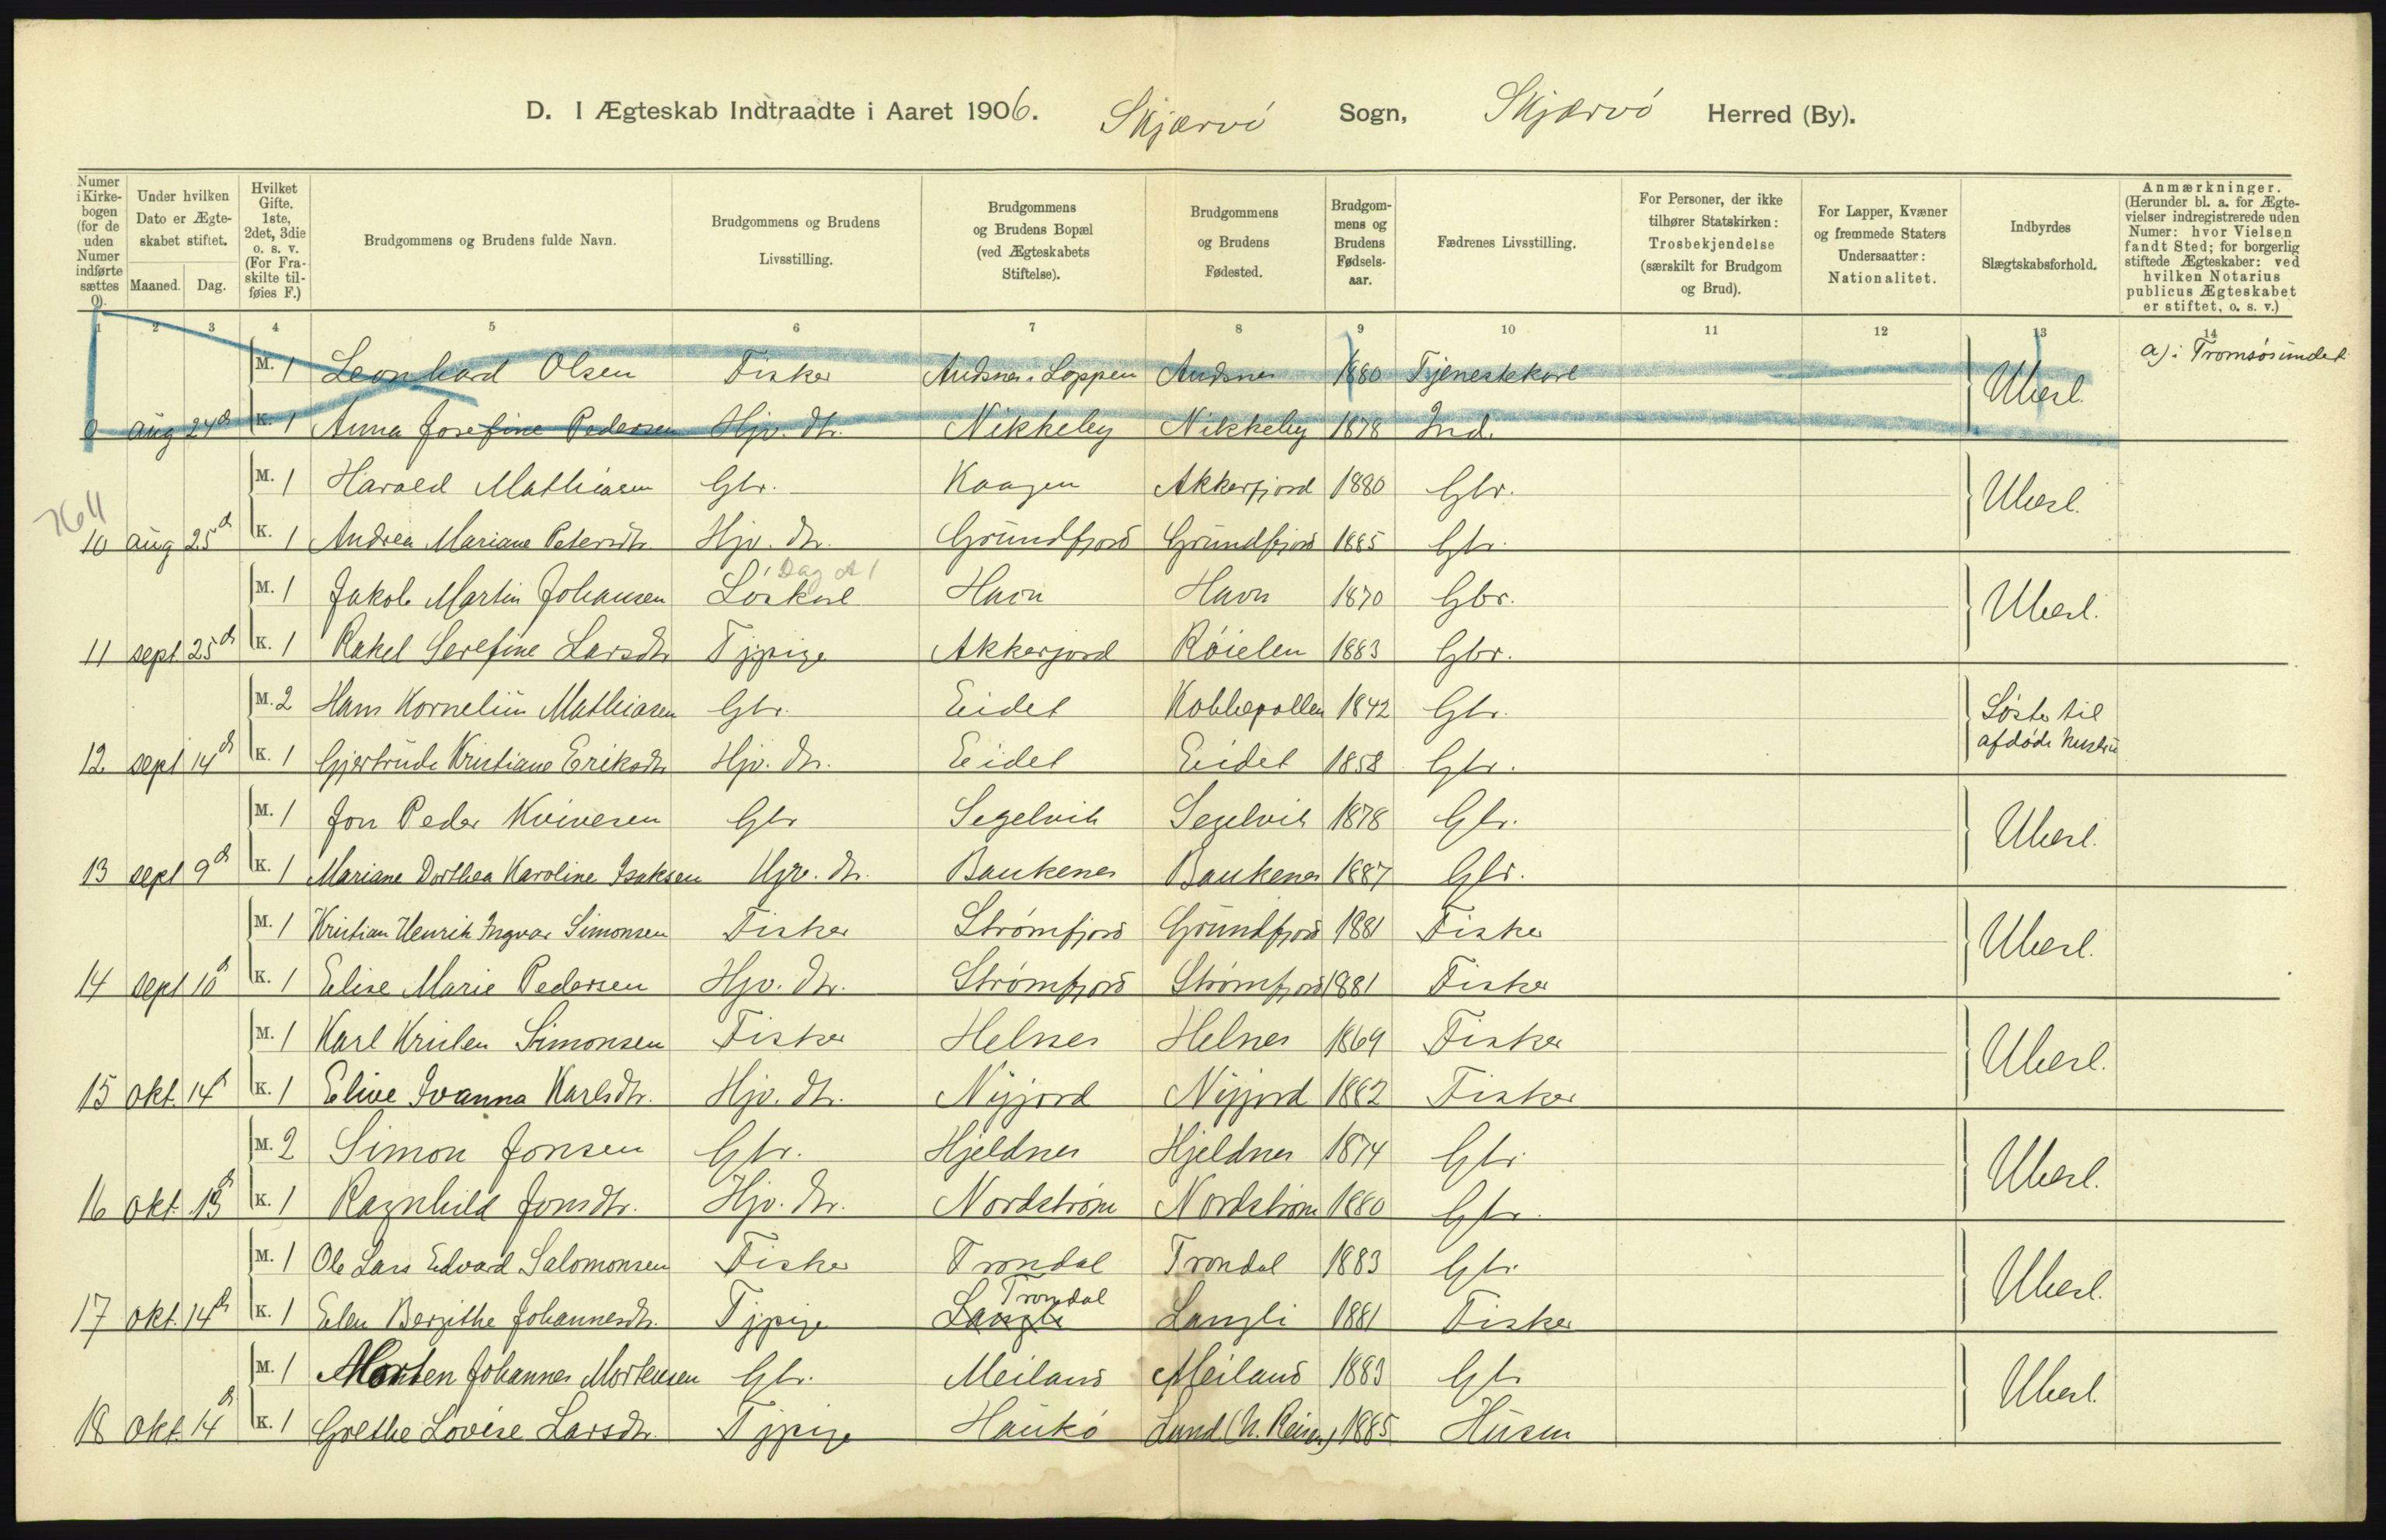 D. I Ægteskab Indtraadte i Aaret 1906. Skjærvö Sogn, Skjærvö Herred (By).
Numer i Kirkebogen (for de uden Numer indførte sættes 0). | Under hvilken Dato er Ægteskabet stiftet. Maaned. Dag. | Hvilket Gifte. 1ste, 2det, 3die o. s. v. (For Fraskilte tilføies F.) | Brudgommens og Brudens fulde Navn. | Brudgommens og Brudens Livsstilling. | Brudgommens og Brudens Bopæl (ved Ægteskabets Stiftelse). | Brudgommens og Brudens Fødested. | Brudgommens og Brudens Fødselsaar. | Fædrenes Livsstilling. | For Personer, der ikke tilhører Statskirken: Trosbekjendelse (særskilt for Brudgom og Brud). | For Lapper, Kvæner og fremmede Staters Undersaatter: Nationalitet. | Indbyrdes Slægtskabsforhold. | Anmærkninger. (Herunder bl. a. for Ægtevielser indregistrerede uden Numer: hvor Vielsen fandt Sted; for borgerlig stiftede Ægteskaber: ved hvilken Notarius publicus Ægteskabet er stiftet, o. s. v.)
1 2 3 4 5 6 7 8 9 10 11 12 13 14
M. 1 Leonhard Olsen Fisker Andsnes i Loppen Andsnes 1880 Tjenestekarl Ubesl. a) i Tromsøsundet
0 aug 24de K. 1 Anna Josefine Pedersen Hjv. Dtr. Nikkeby Nikkeby 1878 Ind.
M. 1 Harald Mathiasen Gbr. Kaagen Akkarfjord 1880 Gbr. Ubesl.
10 aug 25de K. 1 Andrea Mariane Petersdtr. Hjv. Dtr. Grundfjord Grundfjord 1885 Gbr.
M. 1 Jakob Martin Johansen Löskarl Havn Havn 1870 Gbr. Ubesl.
11 sept. 25de K. 1 Rakel Serefine Larsdtr Tjpige Akkarfjord Röielen 1883 Gbr.
M. 2 Hans Kornelius Mathiasen Gbr. Eidet Kobbepollen 1842 Gbr. Søster til
12 sept 14de K. 1 Gjertrude Kristiane Eriksdtr Hjv. Dtr. Eidet Eidet 1858 Gbr. afdøde hustru
M. 1 Jon Peder Kvivesen Gbr Segelvik Segelvik 1878 Gbr. Ubesl.
13 sept 9de K. 1 Mariane Dorthea Karoline Isaksen Hjv. Dtr. Baukenes Baukenes 1887 Gbr.
M. 1 Kristian Henrik Ingvar Simonsen Fisker Strømfjord Grundfjord 1881 Fisker Ubesl.
14 sept 10de K. 1 Elise Marie Pedersen Hjv. Dtr. Strømfjord Strømfjord 1881 Fisker
M. 1 Karl Kristen Simonsen Fisker Helnes Helnes 1869 Fisker Ubesl.
15 okt. 14de K. 1 Elive Ivanna Karlsdtr. Hjv. Dtr. Nyjord Nyjord 1882 Fisker
M. 2 Simon Jonsen Gbr. Hjeldnes Hjeldnes 1874 Gbr Ubesl.
16 okt. K. 1 Ragnhild Jonsdtr. Hjv. Dtr. Nordstrøm Nordstrøm 1880 Gbr.
M. 1 Ole Lars Edvard Salomonsen Fisker Trondal Trondal 1883 Gbr Ubesl.
Trondal
17 okt. 14de K. 1 Elen Bergithe Johannesdtr. Tjpige Langli Langli 1881 Fisker
M. 1 Morten Johannes Mortensen Gbr. Meiland Meiland 1883 Gbr Ubesl.
18 okt. 14de K. 1 Grethe Lovise Larsdtr. Tjpige Haukö Lund (N. Reisen) 1885 Husm